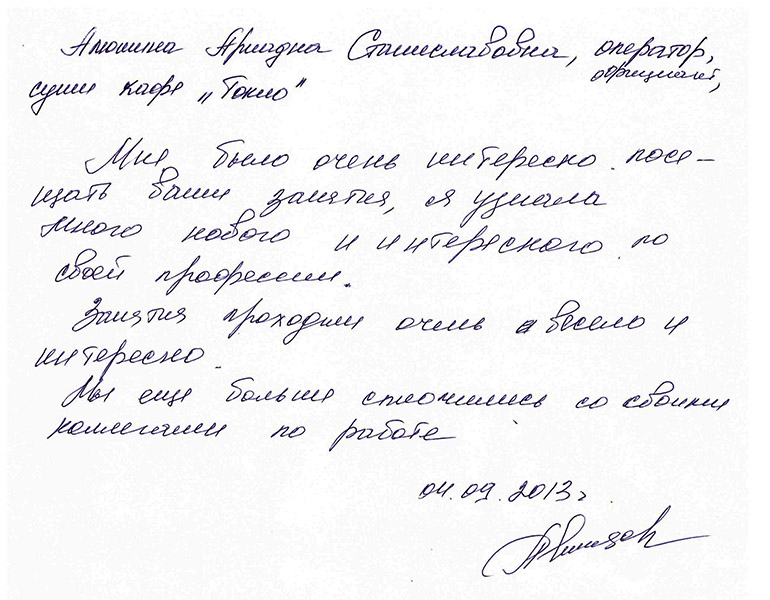 Алюшина Ариадна Станиславовна, оператор,
официант,
суши кафе „Токио"
Мне было очень интересно посе-
щать ваши занятия, я узнала
много нового и интересного по
своей профессии.
Занятия проходили очень весело и
интересно.
Мы еще больше сплочились со своими
коллегами по работе
04.09.2013г